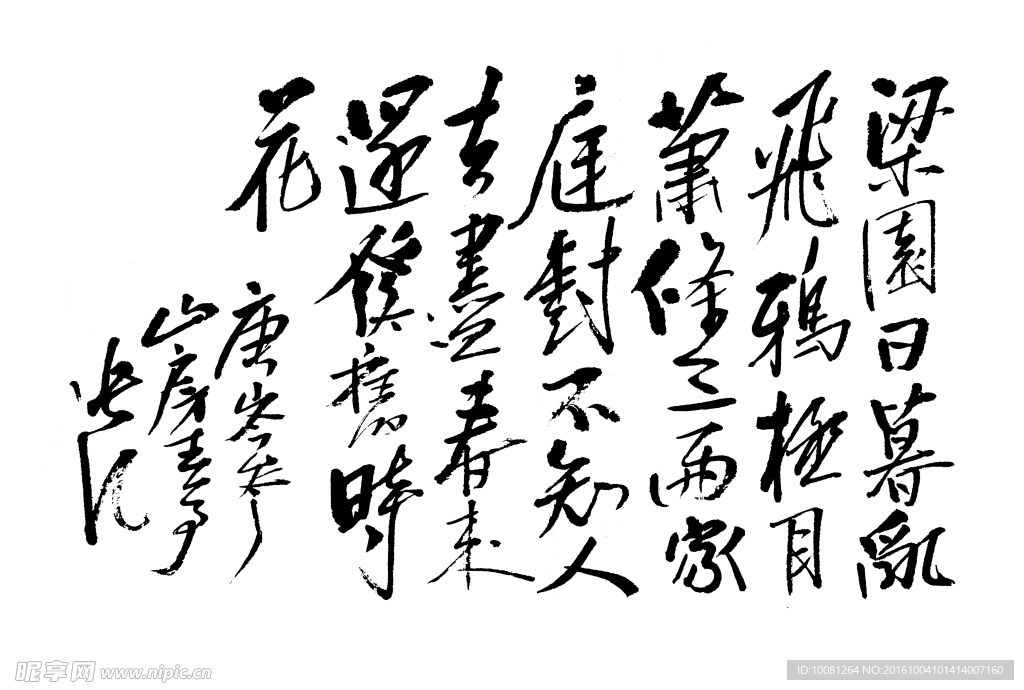 梁園日暮亂
飛鴉極目
蕭條三兩家
庭樹不知人
去盡春來
還發舊時
花
唐岑參
山房春事
昵享网 www.nipic.cn
ID:10081264 NO:20161004101414007160